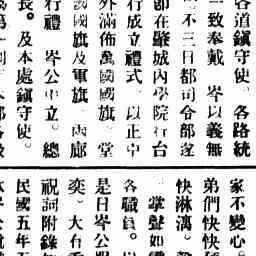 各道鎮守使。各路統
一致奉戴 岑以義無
不三日都司令部遂
即在肇城內學院行台
行成立禮式。以正中
外滿佈萬國國旗。堂
國旗及軍旗。兩廊
行禮 岑公中立。總
長。及本處鎮守使。
家不變心。
弟們快快
快淋漓。
掌聲如
各職員。以
是日岑公
奕。大有
祝詞附錄
民國五年五